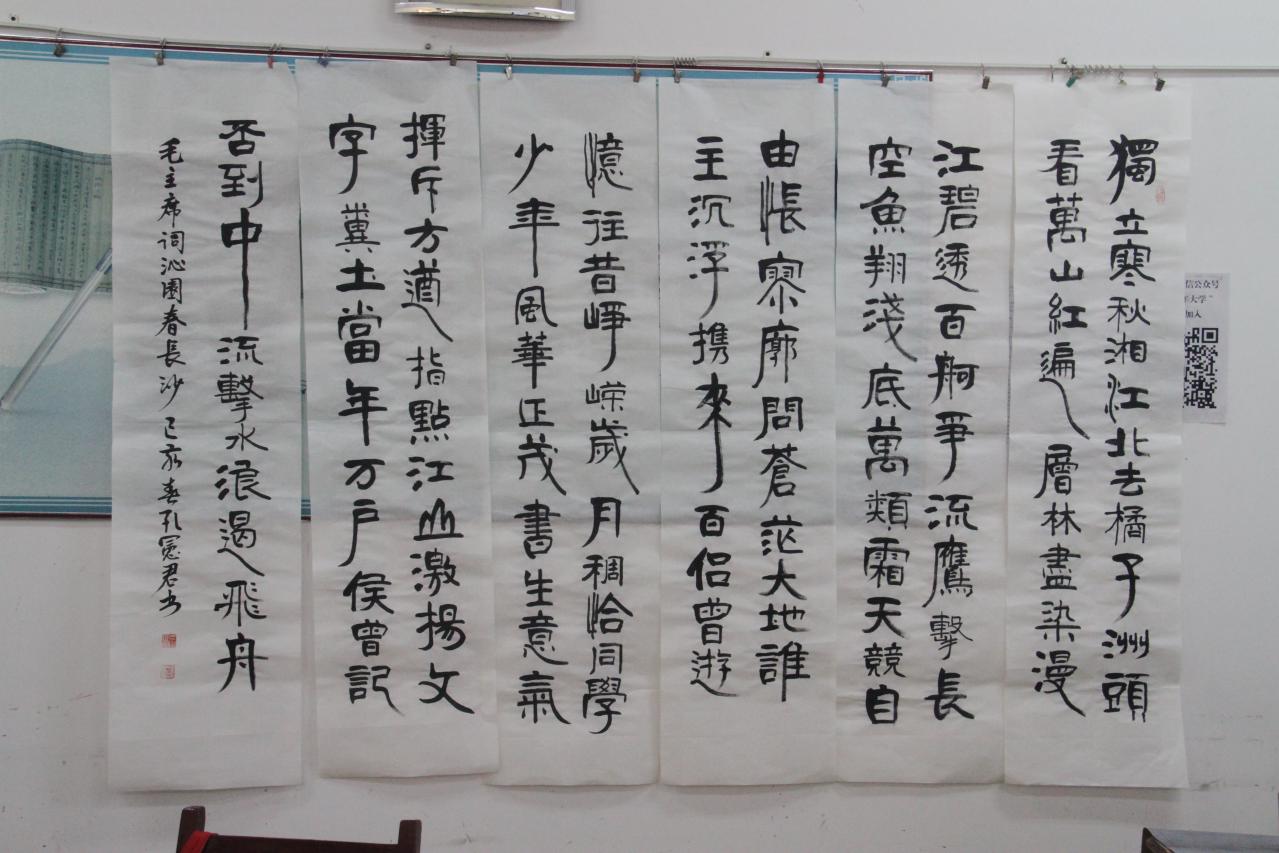 獨立寒秋湘江北去橘子洲頭
看萬山紅遍層林盡染漫
江碧透百舸爭流鷹擊長
空魚翔淺底萬類霜天競自
由悵寥廓問蒼茫大地誰
主沉浮携來百侶曾遊
憶往昔崢嶸歲月稠恰同學
少年風華正茂書生意氣
揮斥方遒指點江山激揚文
字糞土當年万戶侯曾記
否到中流擊水浪遏飛舟
毛主席詞沁園春長沙己亥春孔憲君书
信公众号
大学”
加入